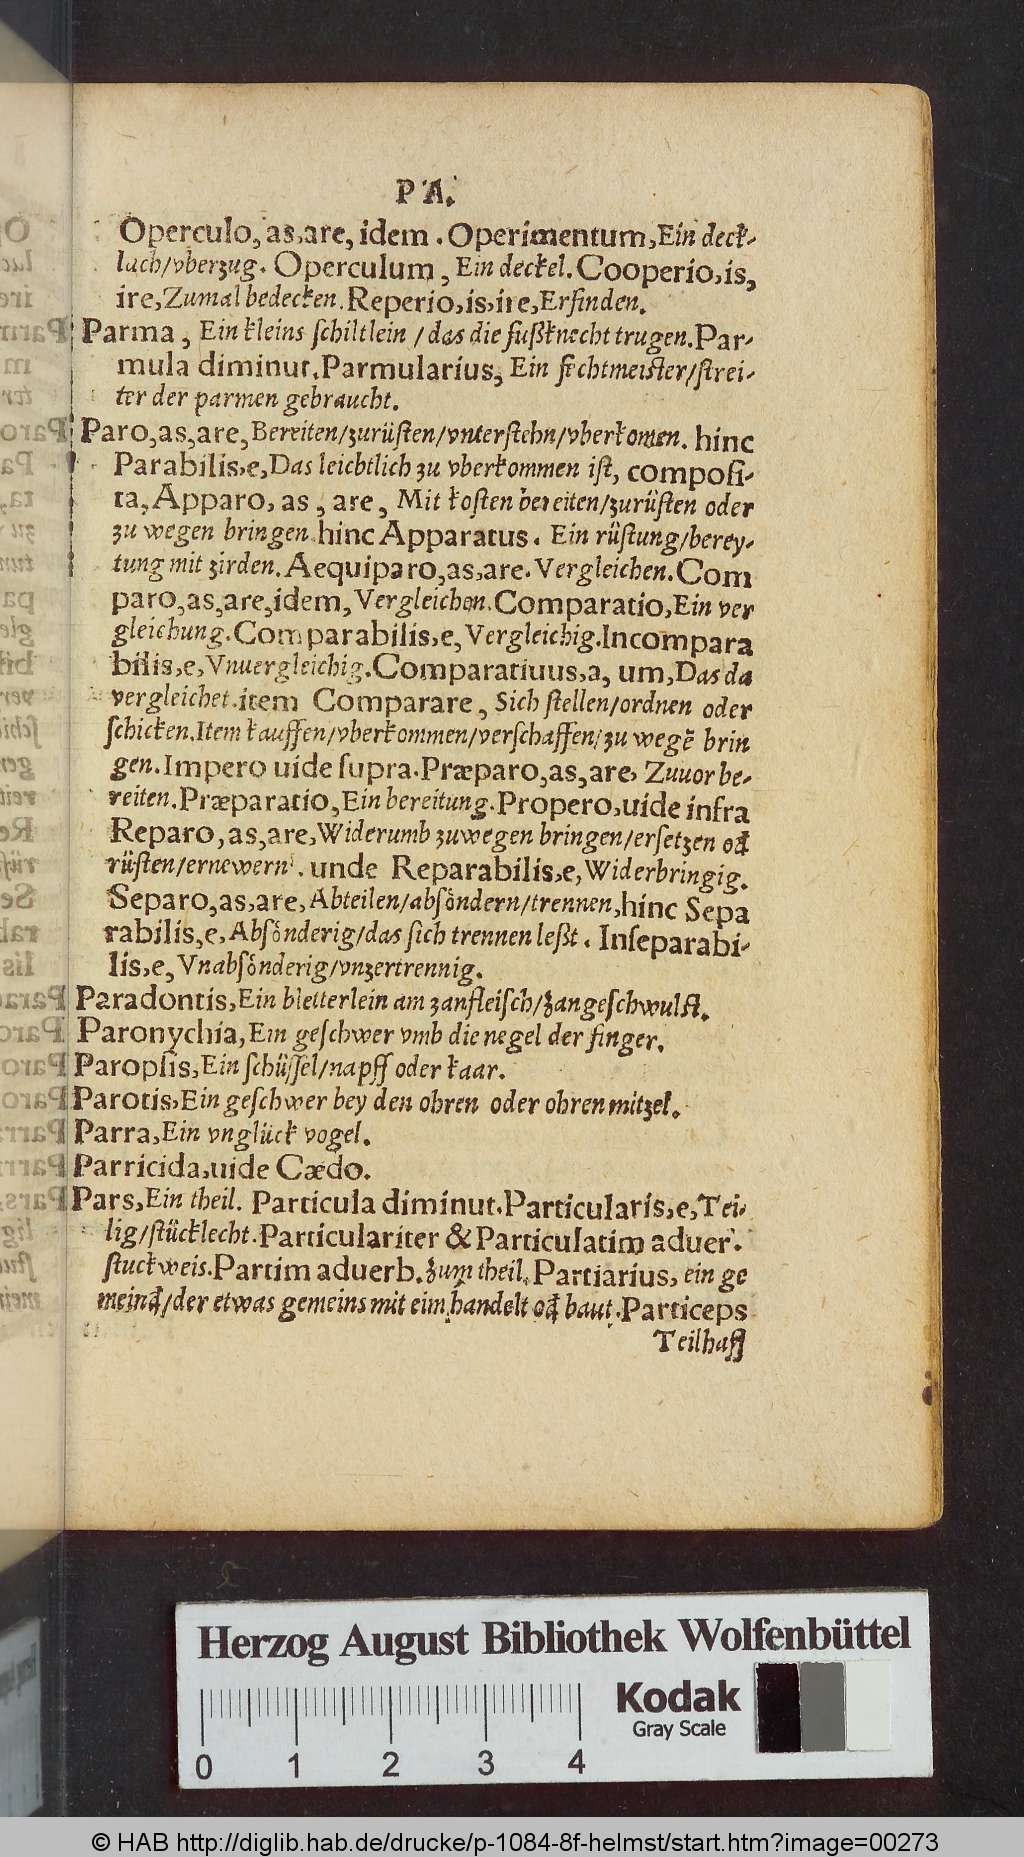 PA.
Operculo, as, are, idem. Operimentum, Ein deck-
lach/vberzug. Operculum, Ein deckel. Cooperio, is,
ire, Zumal bedecken. Reperio, is, ire, Erfinden.
Parma, Ein kleins schiltlein / das die fußknecht trugen. Par-
mula diminut. Parmularius, Ein fechtmeister/strei-
ter der parmen gebraucht.
Paro, as, are, Bereiten/zurüsten/vnterstehn/vberkomen. hinc
Parabilis, e, Das leichtlich zu vberkommen ist, composi-
ta, Apparo, as, are, Mit kosten bereiten/zurüsten oder
zu wegen bringen hinc Apparatus. Ein rüstung/berey-
tung mit zirden. Aequiparo, as, are. Vergleichen. Com
paro, as, are, idem, Vergleichen. Comparatio, Ein ver
gleichung. Comparabilis, e, Vergleichig. Incompara
bilis, e, Vnuergleichig. Comparatiuus, a, um, Das da
vergleichet. item Comparare, Sich stellen/ordnen oder
schicken. Item kauffen/vberkommen/verschaffen/zu wegẽ brin
gen. Impero uide supra. Præparo, as, are, Zuuor be-
reiten. Præparatio, Ein bereitung. Propero, uide infra
Reparo, as, are, Widerumb zuwegen bringen/ersetzen oď
rüsten/ernewern. unde Reparabilis, e, Widerbringig.
Separo, as, are, Abteilen/absöndern/trennen, hinc Sepa
rabilis, e, Absönderig/das sich trennen leßt. Inseparabi-
lis, e, Vnabsönderig/vnzertrennig.
Paradontis, Ein bletterlein am zanfleisch/zangeschwulst.
Paronychia, Ein geschwer vmb die negel der finger.
Paropsis, Ein schüssel/napff oder kaar.
Parotis, Ein geschwer bey den ohren oder ohrenmitzel.
Parra, Ein vnglück vogel.
Parricida, uide Cædo.
Pars, Ein theil. Particula diminut. Particularis, e, Tei-
lig/stücklecht. Particulariter & Particulatim aduer.
stuckweis. Partim aduerb. Zum theil, Partiarius, ein ge
meinď/der etwas gemeins mit eim handelt oď baut. Particeps
Teilhaff
Herzog August Bibliothek Wolfenbüttel
Kodak
Gray Scale
0 1 2 3 4
© HAB http://diglib.hab.de/drucke/p-1084-8f-helmst/start.htm?image=00273